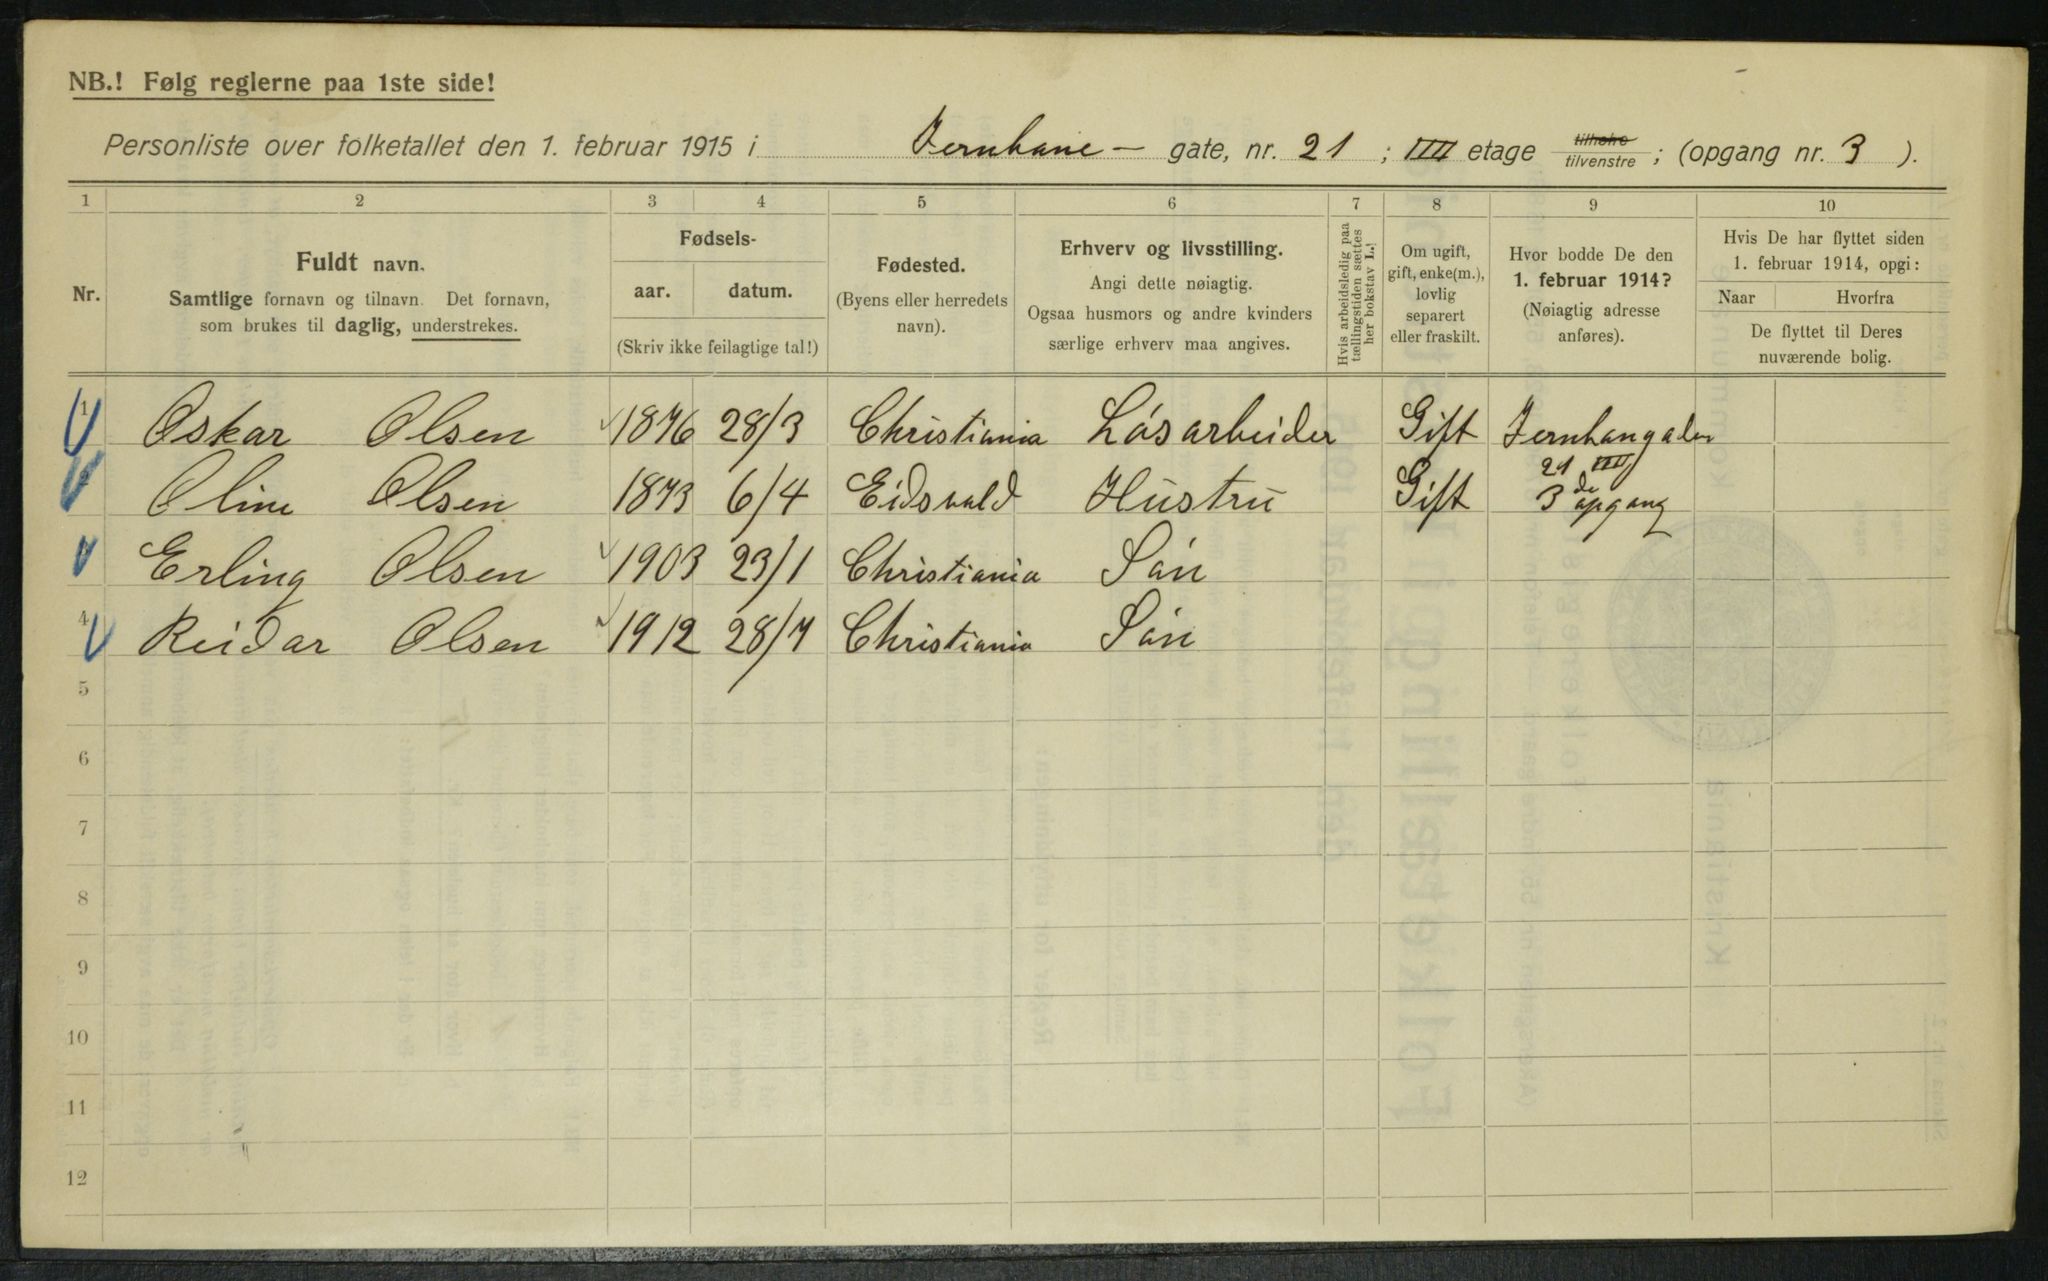 NB.! Følg reglerne paa 1ste side!
Personliste over folketallet den 1. februar 1915 i Jernbane- gate, nr. 21 ; IIII etage tilhøire tilvenstre ; (opgang nr. 3 ).
1 2 3 4 5 6 7 8 9 10
Nr.
Fuldt navn.
Samtlige fornavn og tilnavn. Det fornavn,
som brukes til daglig, understrekes.
Fødsels-
aar. datum.
(Skriv ikke feilagtige tal!)
Fødested.
(Byens eller herredets
navn).
Erhverv og livsstilling.
Angi dette nøiagtig.
Ogsaa husmors og andre kvinders
særlige erhverv maa angives.
Hvis arbeidsledig paa
tællingstiden sættes
her bokstav L.!
Om ugift,
gift, enke(m.),
lovlig
separert
eller fraskilt.
Hvor bodde De den
1. februar 1914?
(Nøiagtig adresse
anføres).
Hvis De har flyttet siden
1. februar 1914, opgi:
Naar Hvorfra
De flyttet til Deres
nuværende bolig.
1 Oskar Olsen 1876 28/3 Christiania Løsarbeider Gift Jernbangaden
21 IIII
2 Oline Olsen 1873 6/4 Eidsvold Hustru Gift 3de opgang
Erling Olsen 1903 23/1 Christiania Søn
4 Reidar Olsen 1912 28/7 Christiania Søn
5
6
7
8
9
10
11
12